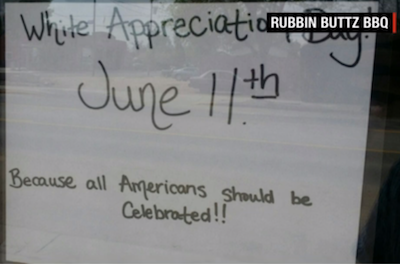 RUBBIN BUTTZ BBQ
White Appreciation Day!
June 11th
Because all Americans should be
Celebrated!!